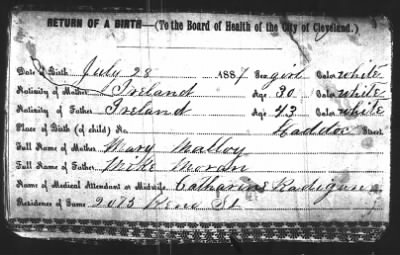 RETURN OF A BIRTH—(To the Board of Health of the City of Cleveland.)
Date of Birth July 28 1887 Sex girl Color white
Nativity of Mother Ireland Age 30 Color white
Nativity of Father Ireland Age 43 Color white
Place of Birth (of child) No. Haddoc Street
Full Name of Mother Mary Malloy
Full Name of Father Mike Moran
Name of Medical Attendant or Midwife, Catharine Radigun
Residence of Same, 2075 St